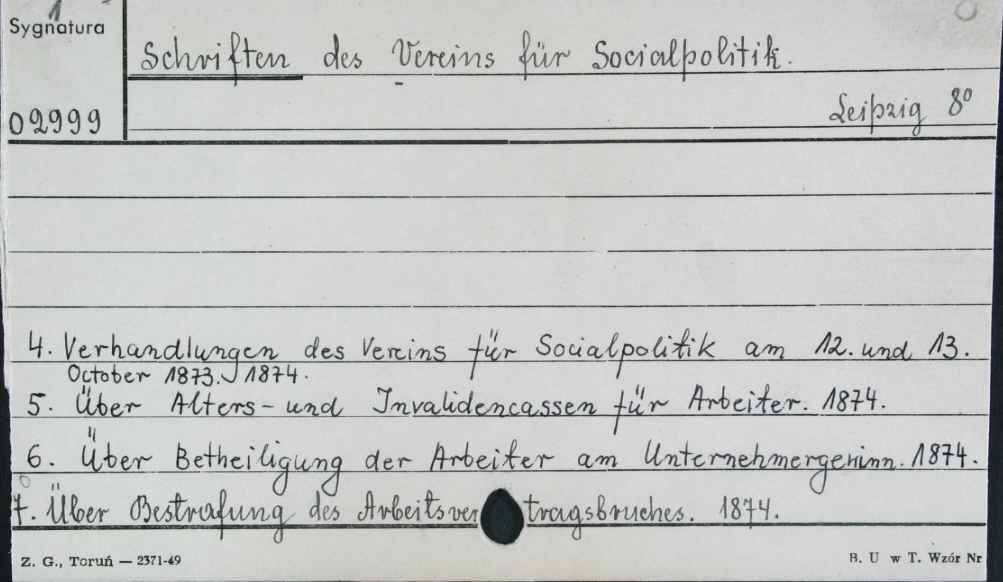 Sygnatura
Schriften des Vereins für Socialpolitik.
02999
Leipzig 8°
4. Verhandlungen des Vereins für Socialpolitik am 12. und 13.
October 1873. 1874.
5. Über Alters- und Invalidencassen für Arbeiter. 1874.
6. Über Betheiligung der Arbeiter am Unternehmergewinn. 1874.
7. Über Bestrafung des Arbeitsvertragsbruches. 1874.
Z. G., Toruń — 2371-49
B. U w T. Wzór Nr